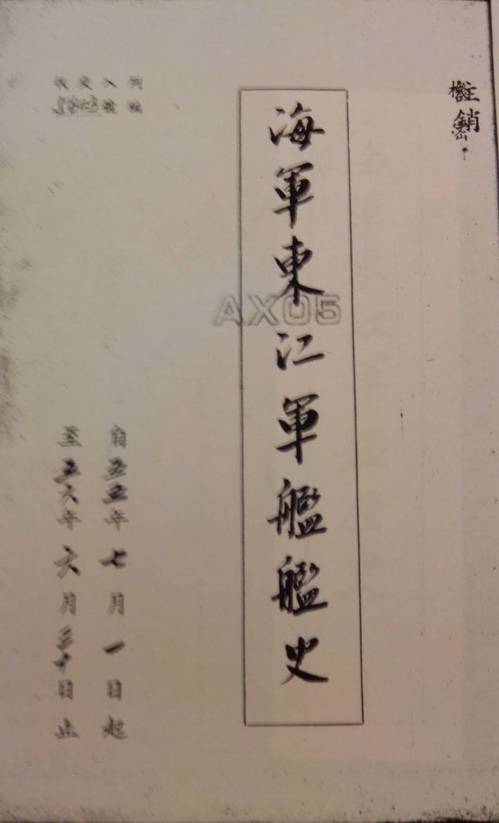 註銷
海軍東江軍艦艦史
AX05
自五五年七月一日起
至五六年六月三十日止